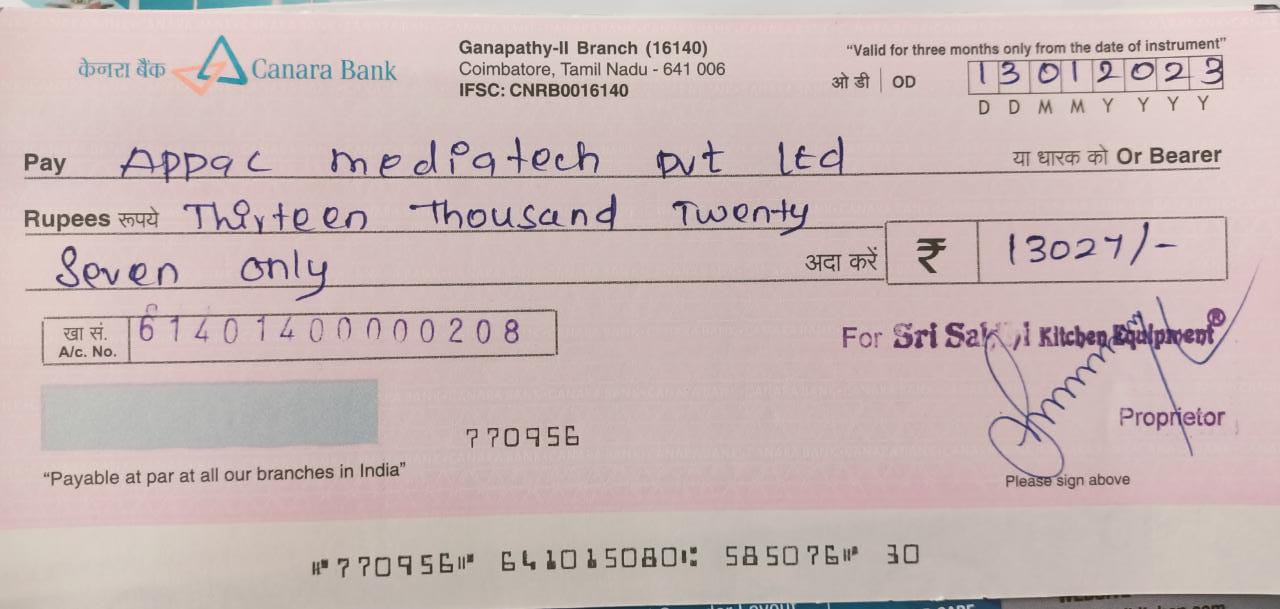 केनरा बैंक Canara Bank
Ganapathy-II Branch (16140)
Coimbatore, Tamil Nadu - 641 006
IFSC: CNRB0016140
"Valid for three months only from the date of instrument"
ओ डी | OD 13012023
D D M M Y Y Y Y
Pay Appac mediatech pvt ltd या धारक को Or Bearer
Rupees रुपये Thirteen Thousand Twenty
Seven only अदा करें ₹ 13027/-
खा सं. A/c. No. 61401400000208
For Sri Kitchen Equipment®
Proprietor
770956
"Payable at par at all our branches in India"
Please sign above
⑈770956⑈ 641015080⑆ 585076⑈ 30